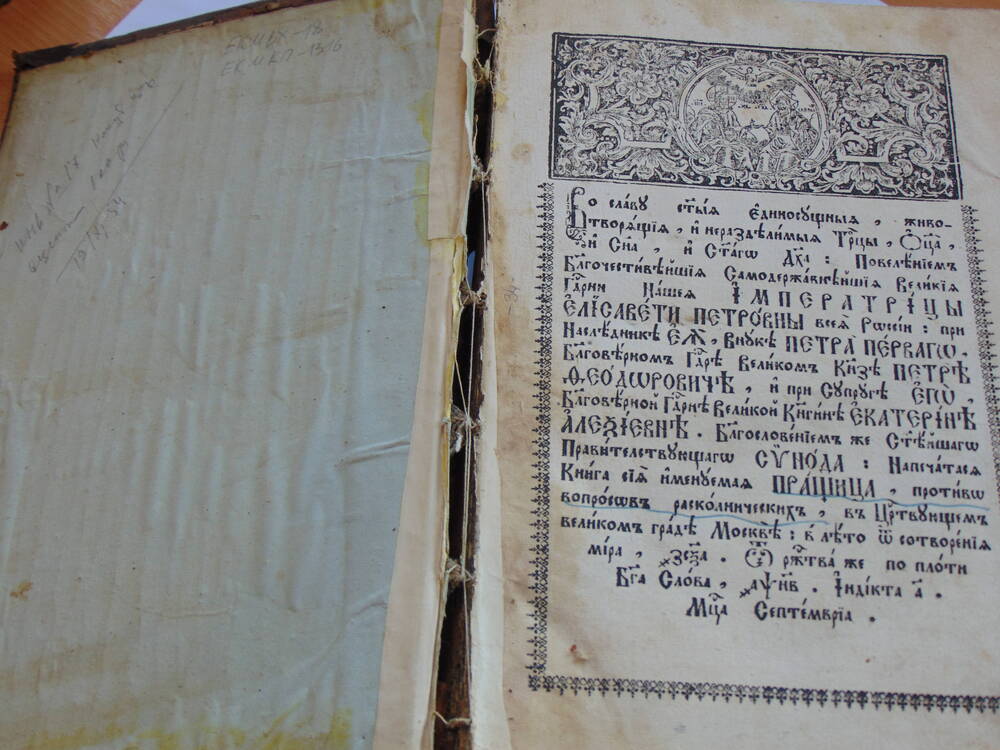 ЕКМВХ-18
ЕКМКП-1316
Во славу ст҃ыѧ Единосущныѧ, живо-
творѧщїѧ, и нераздѣлимыѧ Трⷪ҇цы, Оц҃а,
и Сн҃а, и Ст҃агѡ Дх҃а: Повелѣнїемъ
Благочестивѣйшїѧ Самодержавнѣйшїѧ Великїѧ
Гдⷭ҇рни Нашеѧ ІМПЕРАТРІЦЫ
ЕЛІСАВЕТИ ПЕТРОВНЫ всеѧ Рѡссіи: при
Наслѣдникѣ ЕѦ, Внукѣ ПЕТРА ПЕРВАГѠ,
Бл҃говѣрномъ Гдⷭ҇рѣ Великомъ Кн҃зѣ ПЕТРѢ
ѲЕОДѠРОВИЧѢ, и при Супругѣ ЕГѠ,
Бл҃говѣрной Гдⷭ҇рнѣ Великой Кнг҃инѣ ЕКАТЕРІНѢ
АЛЕѮІЕВНѢ. Бл҃гословенїемъ же Ст҃ѣйшагѡ
Правителствующагѡ СѴНОДА: Напечатасѧ
Книга сїѧ именуемаѧ ПРАЩИЦА, противѡ
вопросѡвъ расколническихъ, въ Цр҃твующемъ
великомъ градѣ Москвѣ: в лѣто ѿ сотворенїѧ
мїра, ҂зс҃ѯа. Ѿ рж҃тва же по плоти
Бг҃а Слова, ҂аѱн҃в. Індікта а҃.
Мц҃а Септемврїа.